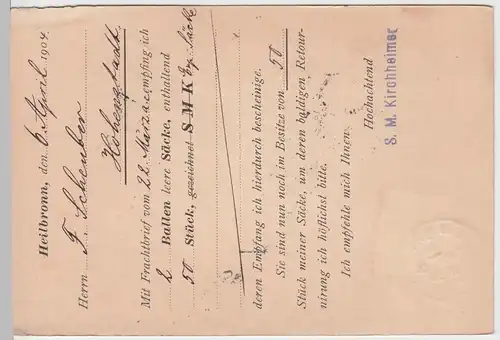 Heilbronn, den 6 April 1904.
Herrn F. Scheuber
Hohenstadt
Mit Frachtbrief vom 22. März a.c. empfing ich
2 Ballen leere Säcke, enthaltend
50 Stück, gezeichnet S M K Säcke
deren Empfang ich hierdurch bescheinige.
Sie sind nun noch im Besitze von 50
Stück meiner Säcke, um deren baldigen Retour-
nirung ich höflichst bitte.
Ich empfehle mich Ihnen
Hochachtend
S. M. Kirchheimer